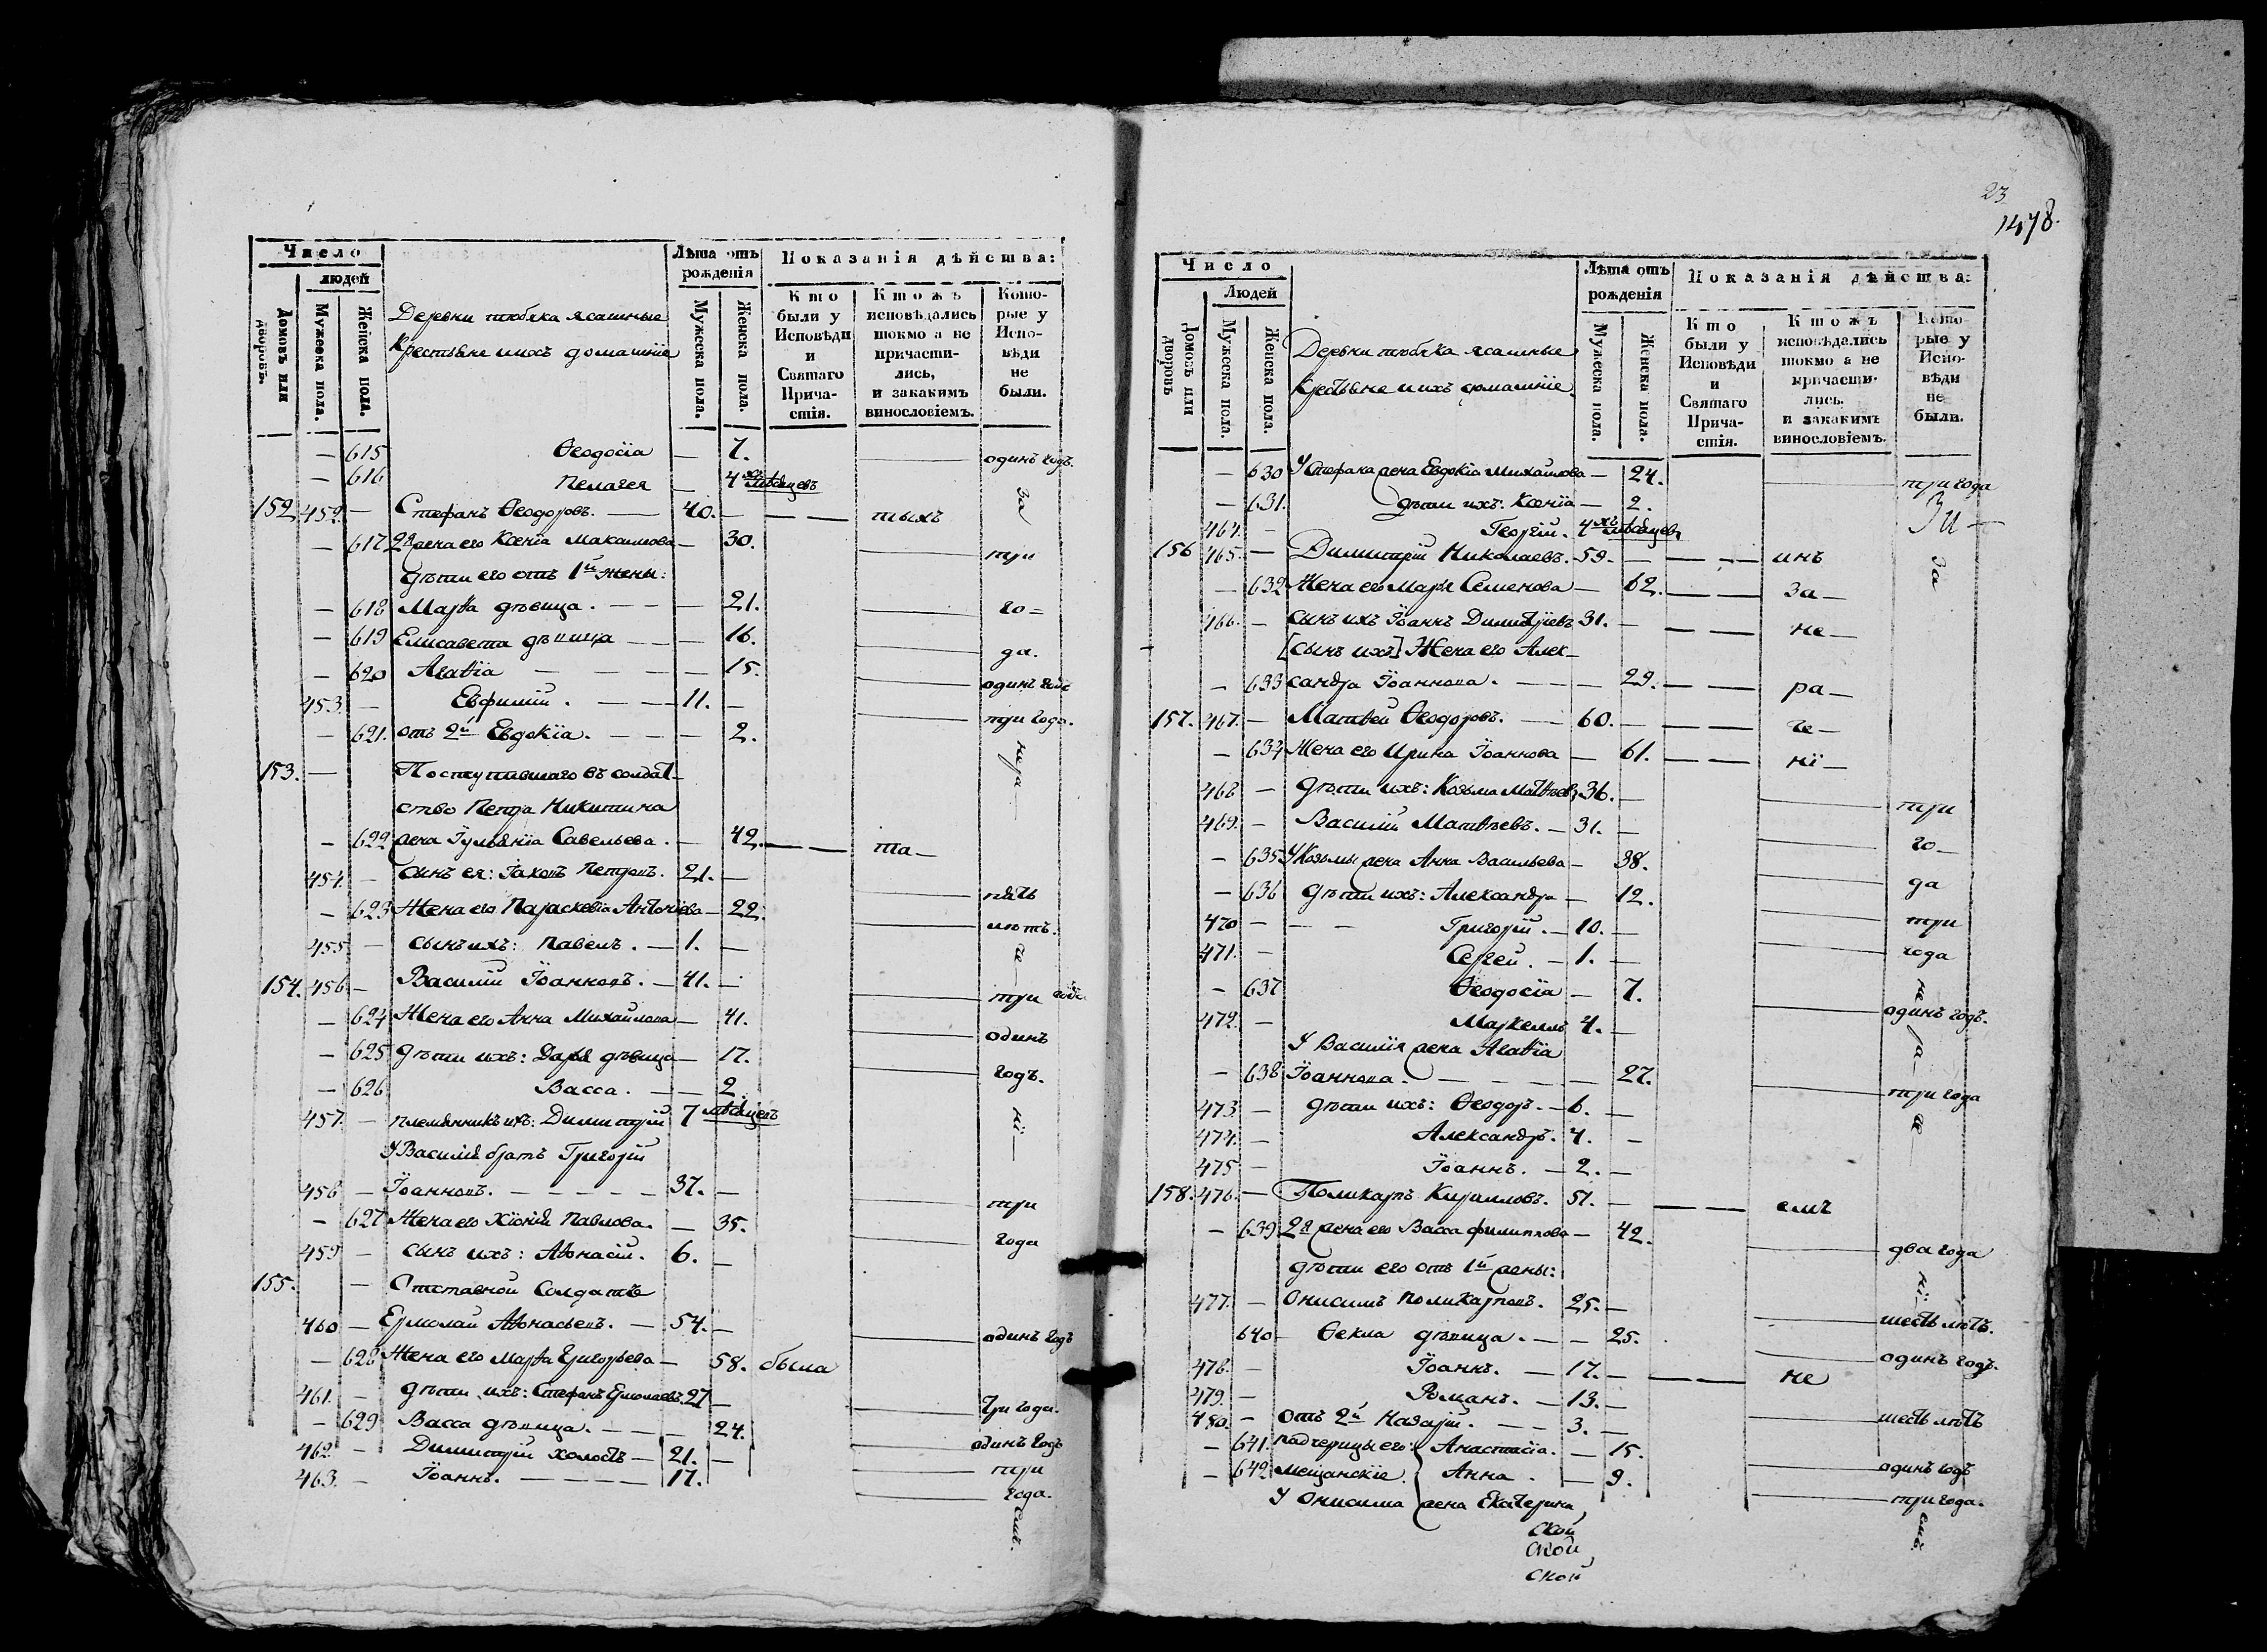 Число
людей
Домовъ или дворовъ.
Мужеска пола.
Женска пола.
Деревни тюбяка ясашные
Крестьяне и ихъ домашніе
Лѣта отъ рожденія
Мужеска пола.
Женска пола.
Показанія дѣйства:
Кто были у Исповѣди и Святаго Причастія.
Ктожъ исповѣдались токмо а не причастились, и закакимъ винословіемъ.
Которые у Исповѣди не были.
— 615 Ѳеодосіа — 7. одинъ годъ.
— 616 Пелагея — 4 хъ мѣсяцевъ
за
152. 452. — Стефанъ Ѳеодоровъ. — 40. — — — тыхъ
— 617 2я жена его Ксеніа Максимова — 30. три
дѣти его отъ 1й жены:
— 618 Марѳа дѣвица. — — — 21. го=
— 619 Елисавета дѣвица — — 16. да.
— 620 Агаѳіа — — — 15. одинъ годъ
453. — Евфимій. — — 11. — три года.
— 621. отъ 2й Евдокіа. — — — 2.
нера—
153. — Поступившаго въ солдат-
ство Петра Никитина
— 622 жена Іуліаніа Савельева. — 42. — — та—
454. — сынъ ея: Іаковъ Петровъ. 21. — пять
— 623 Жена его Параскевіа Антоніева — 22. лѣтъ.
455. — сынъ ихъ: Павелъ. — 1. —
че—
154. 456. — Василій Іоанновъ. — 41. — три года
— 624 Жена его Анна Михайлова — 41. одинъ
— 625 дѣти ихъ: Дарья дѣвица — 17. годъ.
— 626 Васса. — — 2.
457. — племянникъ ихъ: Димитрій 7 мѣсяцевъ
ні—
У Василія братъ Григорій
458 — Іоанновъ. — — — — — 37. — три
— 627 Жена его Хіоніа Павлова. — 35. года
459 — сынъ ихъ: Аѳонасій. 6. —
155. — Отставной Солдатъ
460 — Ермолай Аѳонасьевъ. — 54. — одинъ годъ
— 628 Жена его Марѳа Григорьева — 58. была
461. — дѣти ихъ: Стефанъ Ермолаевъ. 27 — три года.
— 629 Васса дѣвица. — — — 24. одинъ годъ
462 — Димитрій холостъ — 21. — три
463. — Іоаннъ. — — — — 17. года.
емъ.
23
1478.
Число
Людей
Домовъ или дворовъ
Мужеска пола.
Женска пола.
Деревни тюбяка ясашные
Крестьяне и ихъ домашніе.
Лѣта отъ рожденія
Мужеска пола.
Женска пола.
Показанія дѣйства:
Кто были у Исповѣди и Святаго Причастія.
Ктожъ исповѣдались токмо а не причастились. и закакимъ винословіемъ.
Которые у Исповѣди не были.
— 630 У Стефана жена Евдокіа Михаилова — 24. три года
— 631. дѣти ихъ: Ксеніа — 2.
464. — Георгій. 4 хъ мѣсяцевъ
156 465. — Димитрій Николаевъ. 59. — — — инъ
за
— 632 Жена его Марья Семенова — 62. — — За—
466. — сынъ ихъ Іоаннъ Димитріевъ 31. — — — не—
[сынъ ихъ] Жена его Алек-
— 633 сандра Іоаннова. — — — 29. — — ра—
157. 467. — Матвей Ѳеодоровъ. — 60. — — — че—
— 634 Жена его Ирина Іоаннова — 61. — — ні—
468 — дѣти ихъ: Козьма Матвѣевъ 36. — три
469. — Василій Матвѣевъ. — 31. — го—
— 635 У Козьмы жена Анна Васильева — 38. да
— 636 дѣти ихъ: Александра — 12. три
470 — — — Григорій. — 10. — года
471. — Сергей. — 1. —
не
— 637 Ѳеодосіа — 7. одинъ годъ.
472. — Маркеллъ 4. —
ра—
У Василія жена Агаѳіа
— 638 Іоаннова. — — — — — 27. три года
473 — дѣти ихъ: Ѳеодоръ. — 6. —
че
474. — Александръ. 4. —
475 — Іоаннъ. — 2. —
158. 476. — Поликарпъ Кирилловъ. 51. — — — емъ
— 639 2я жена его Васса Филиппова — 42. два года
дѣти его отъ 1й жены:
ні
477. — Онисимъ Поликарповъ. 25. — шесть лѣтъ.
640 — Ѳекла дѣвица. — — 25. одинъ годъ.
478. — Іоаннъ. — 17. — — — не
479. — Романъ. — 13. — шесть лѣтъ
480. — отъ 2й Назарій. — — 3. —
— 641. падчерицы его: Анастасіа. — 15. одинъ годъ
— 642 мещанскіе. Анна. — 9. три года.
У Онисима жена Екатерина
емъ.
ской
ской
ской